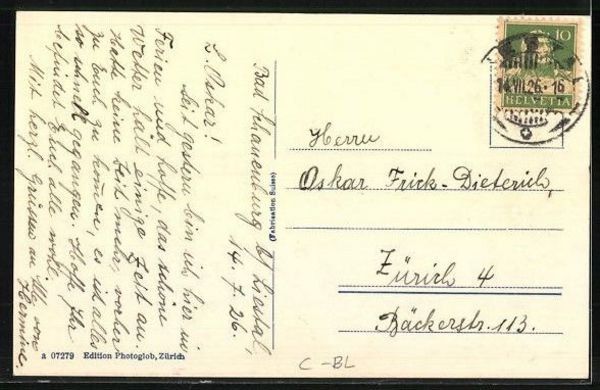 Bad Schauenburg b/ Liestal,
14.7.26.
L. Oskar!
Seit gestern bin ich hier in
Ferien und hoffe, das schöne
Wetter hält einige Zeit an.
Hatte keine Zeit mehr, vorher
zu Euch zu kommen, es ist alles
so schnell gegangen. Hoffe Ihr
befindet Euch alle wohl.
Mit herzl. Grüssen an Alle von
Hermine.
(Fabrication Suisse)
a 07279 Edition Photoglob, Zürich
10
14.VII.26.-16
HELVETIA
Herrn
Oskar Frick-Dieterich,
Zürich 4
Bäckerstr. 113.
C-BL